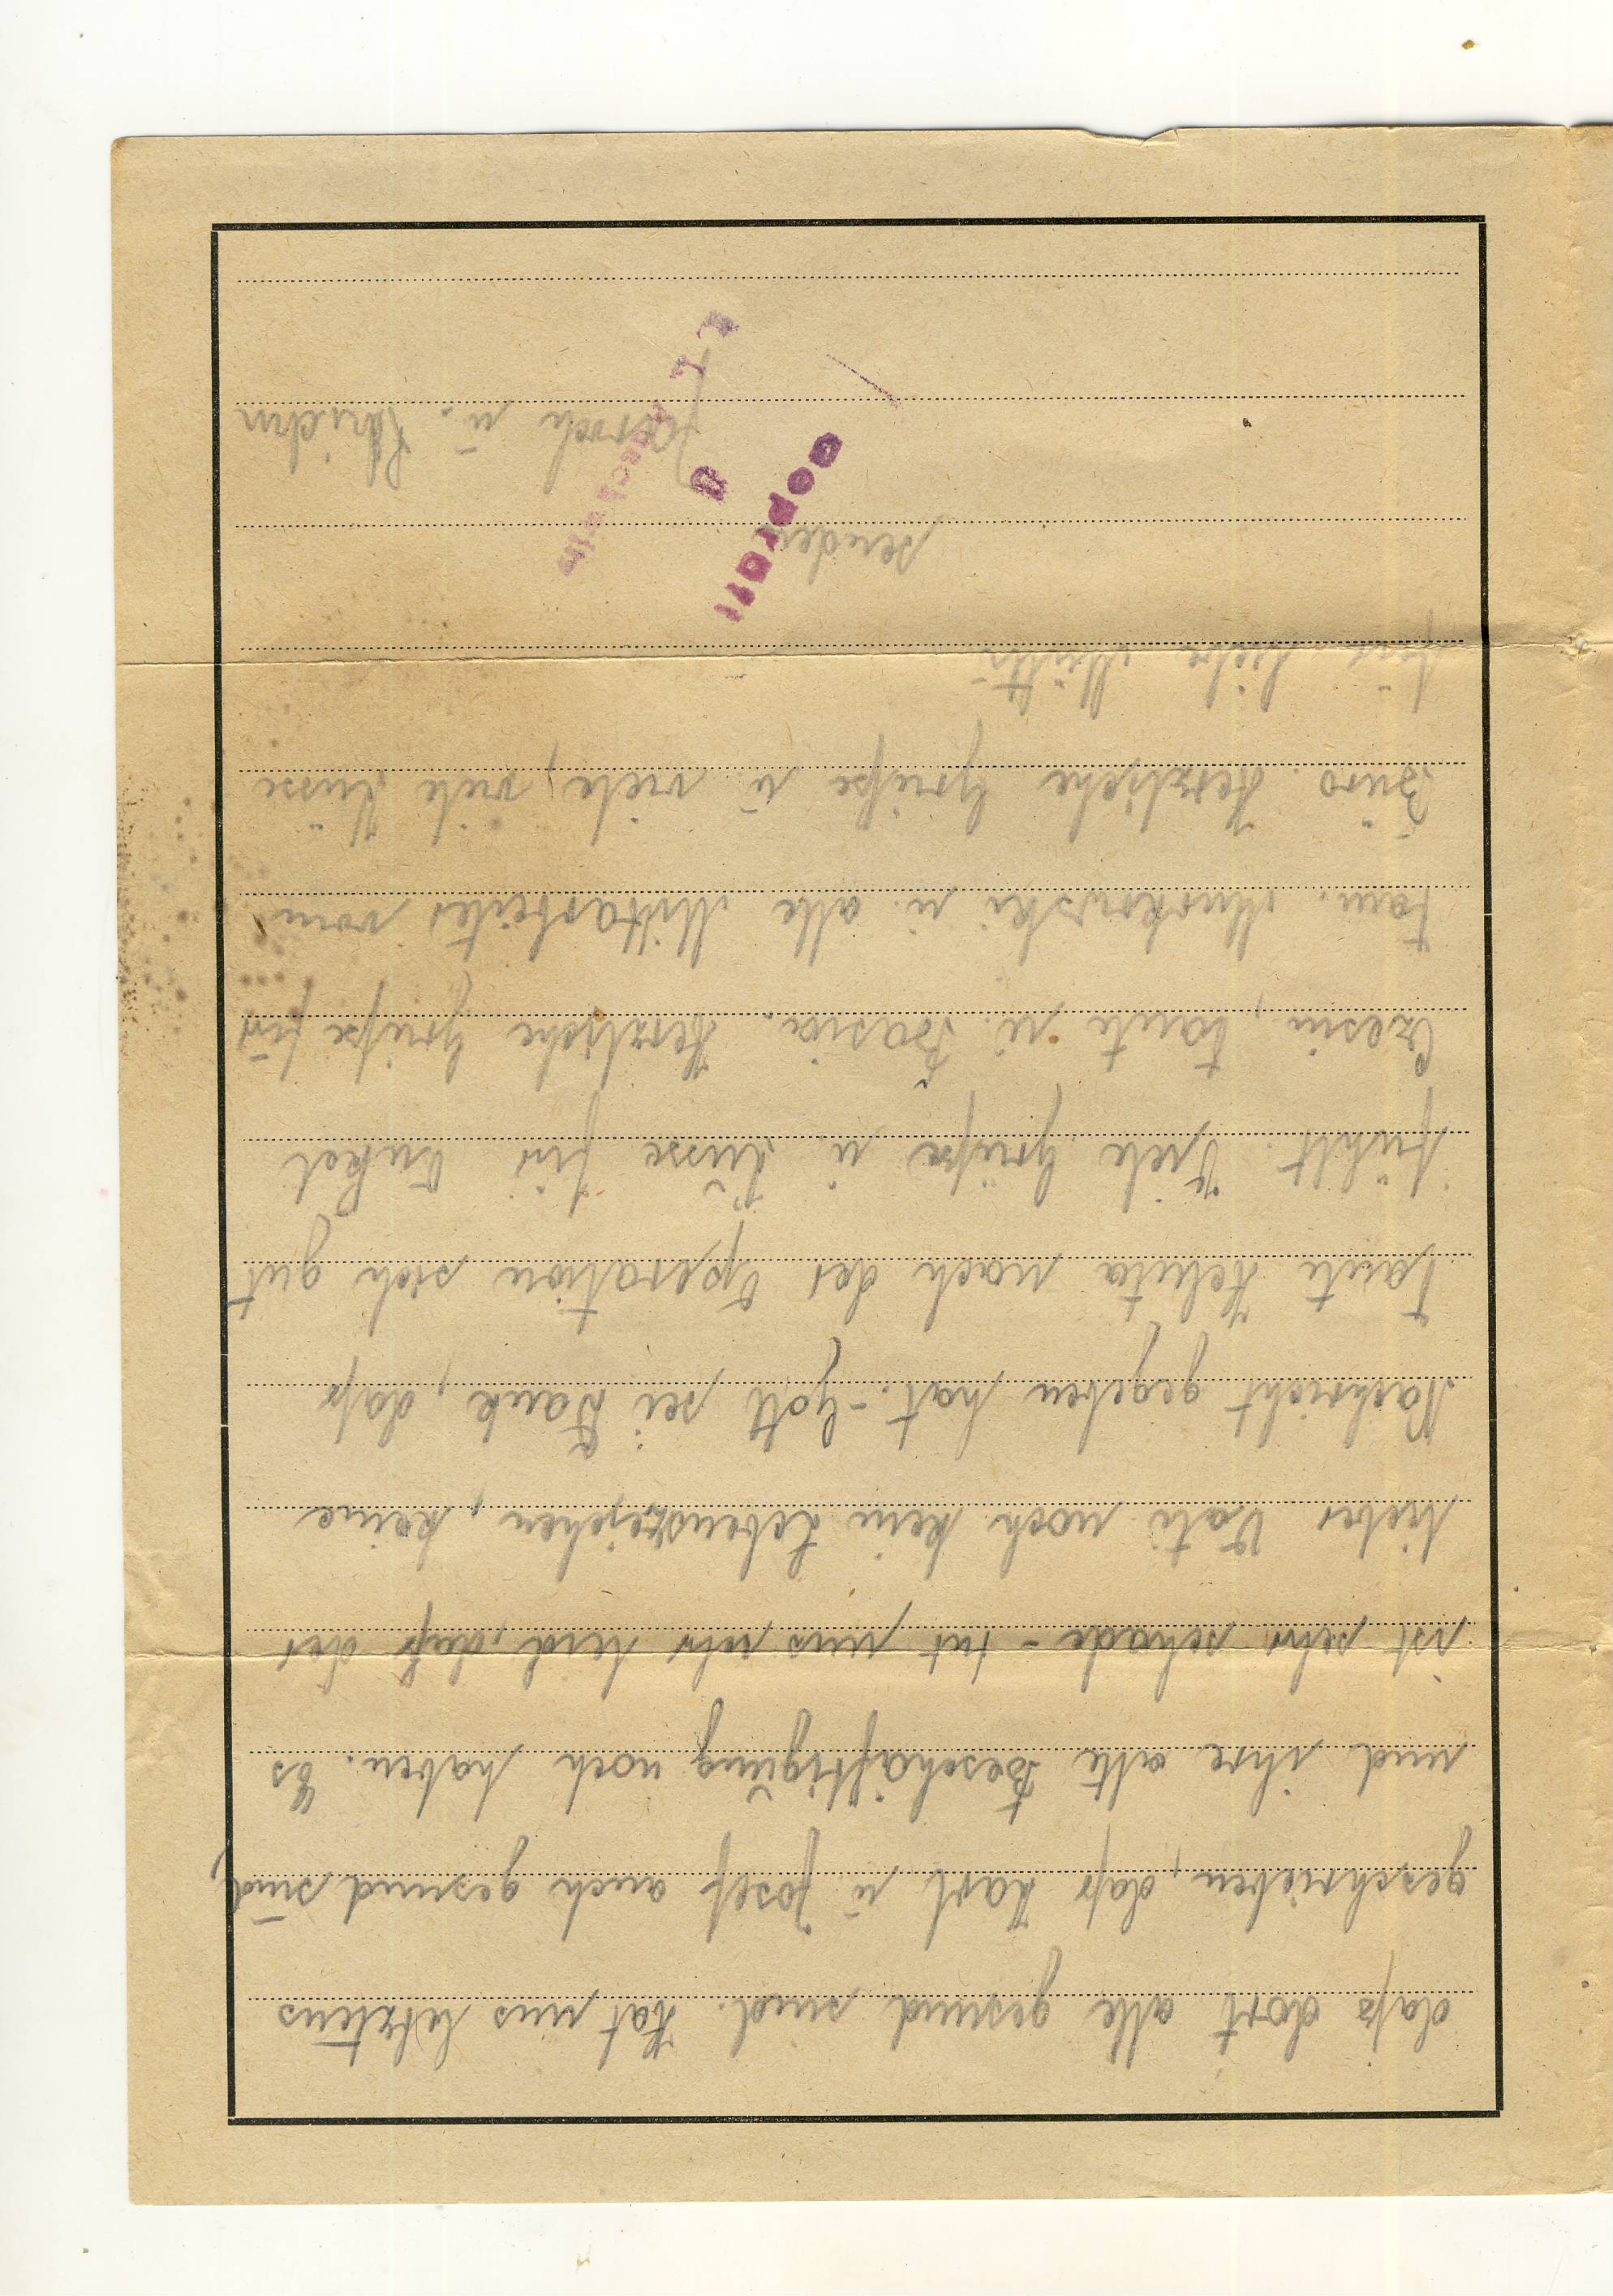 daß dort alle gesund sind. Hat uns letztens
geschrieben, daß Karl ü Josef auch gesund sind,
und ihre alte Beschäftigung noch haben. Es
ist sehr schade - tut uns sehr leid, daß der
lieber Vati noch kein Lebenszeichen, keine
Nachricht gegeben hat. - Gott sei Dank, daß
Tante Heluta nach der Operation sich gut
fühlt. Viele Grüße ü Küsse für Onkel
Czesiu, Tante ü. Basia. Herzliche Grüße für
Fam. ü. alle Mitarbeiter vom
Büro. Herzliche Grüße ü viele, viele Küsse
für liebe Mutti
senden
ü.
geprüft